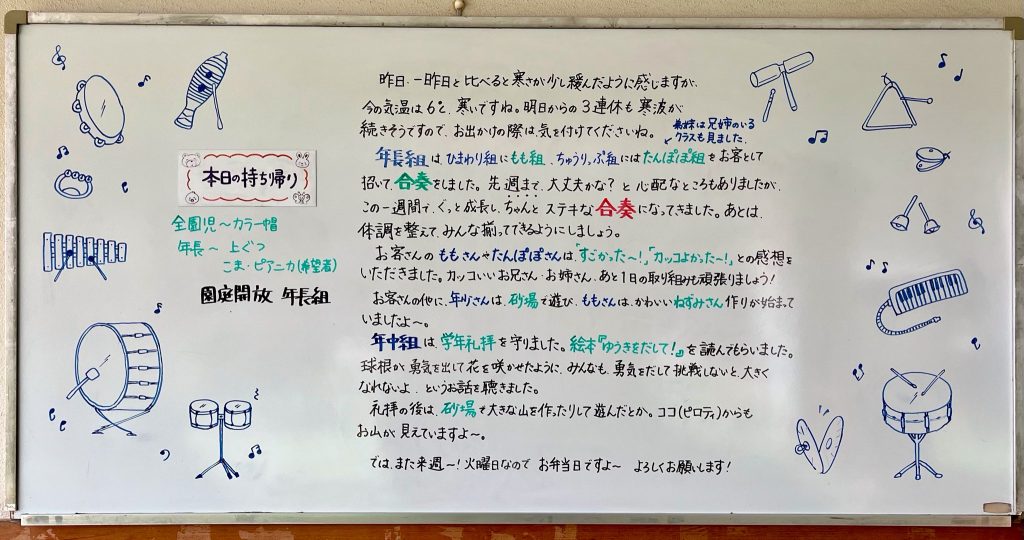 本日の持ち帰り
全園児〜カラー帽
年長〜上ぐつ
こま・ピアニカ(希望者)
園庭開放 年長組
昨日、一昨日と比べると寒さが少し緩んだように感じますが、
今の気温は6℃、寒いですね。明日からの3連休も寒波が
続きそうですので、お出かけの際は気を付けてくださいね。
弟妹は兄姉のいる
クラスも見ました。
年長組は、ひまわり組にもも組、ちゅうりっぷ組にはたんぽぽ組をお客として
招いて、合奏をしました。先週まで、大丈夫かな?と心配なところもありましたが、
この一週間で、ぐっと成長し、ちゃんとステキな合奏になってきました。あとは、
体調を整えて、みんな揃ってできるようにしましょう。
お客さんのももさんやたんぽぽさんは、「すごかった〜!」「カッコよかった〜!」との感想を
いただきました。カッコいいお兄さん・お姉さん、あと1日の取り組みも頑張りましょう!
お客さんの他に、年少さんは、砂場で遊び、ももさんは、かわいいねずみさん作りが始まって
いましたよ〜。
年中組は、学年礼拝を守りました。絵本『ゆうきをだして!』を読んでもらいました。
球根が、勇気を出して花を咲かせたように、みんなも、勇気をだして挑戦しないと、大きく
なれないよ、というお話を聴きました。
礼拝の後は、砂場で大きな山を作ったりして遊んだとか。ココ(ピロティ)からも
お山が見えていますよ〜。
では、また来週〜!火曜日なので お弁当日ですよ〜 よろしくお願いします!